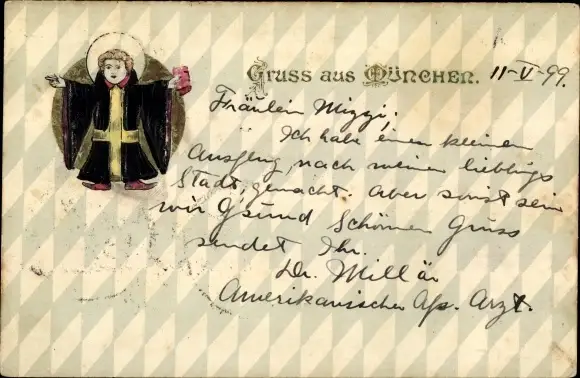 Gruss aus München. 11-V-99.
Fräulein Mizzi;
Ich habe einen kleinen
Ausflug, nach meinen lieblings
Stadt, gemacht. Aber sonst sein
wir G'sund Schönen Gruss
sendet Ihr.
Dr. Millär
Amerikanischer Arzt.